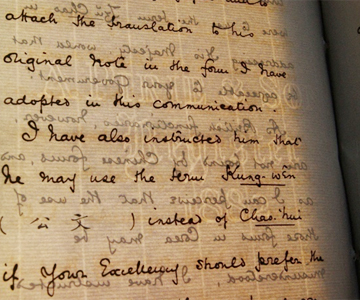 attach the translation to his
original note in the form I have
adopted in this communication.
I have also instructed him that
he may use the term Kung-wǎn
( 公文 ) instead of Chao.hui
if Your Excellency should prefer the